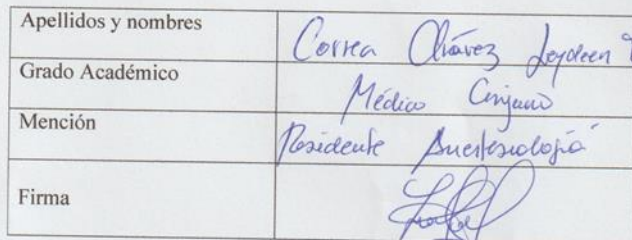 Apellidos y nombres Correa Chávez Leydeen
Grado Académico Médico Cirujano
Mención Residente Anestesiología
Firma